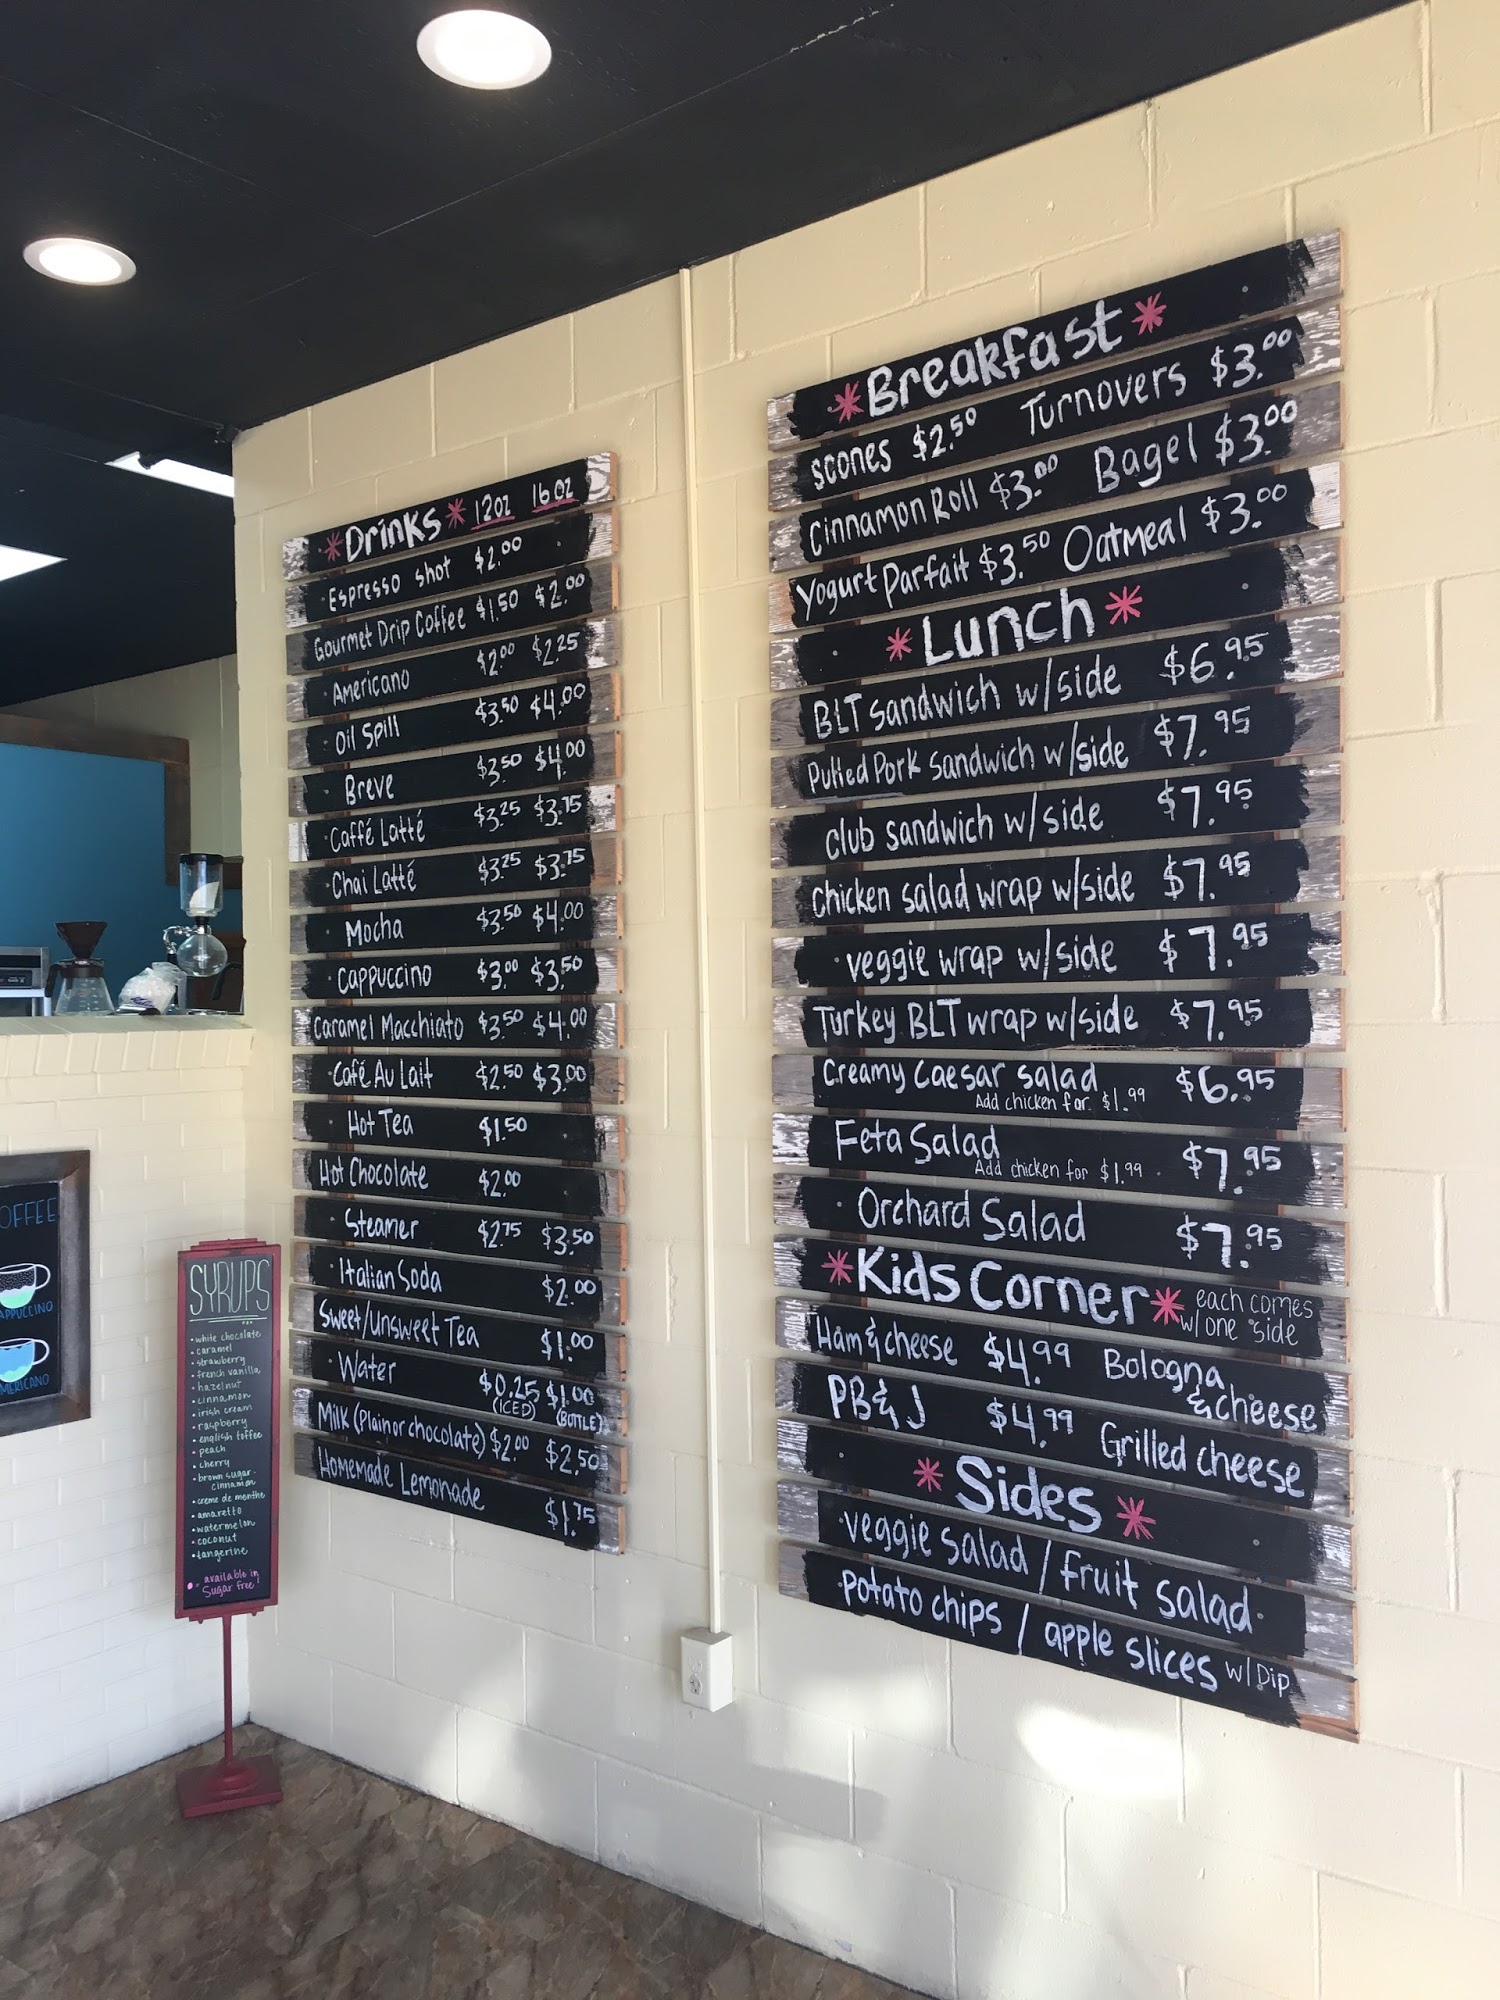 *Drinks* 12oz 16oz
Espresso shot $2.00
Gourmet Drip Coffee $1.50 $2.00
Americano $2.00 $2.25
Oil Spill $3.50 $4.00
Breve $3.50 $4.00
Caffé Latté $3.25 $3.75
Chai Latté $3.25 $3.75
Mocha $3.50 $4.00
Cappuccino $3.00 $3.50
Caramel Macchiato $3.50 $4.00
Café Au Lait $2.50 $3.00
Hot Tea $1.50
Hot Chocolate $2.00
Steamer $2.75 $3.50
Italian Soda $2.00
Sweet/Unsweet Tea $1.00
Water $0.25 $1.00
(ICED) (BOTTLE)
Milk (Plain or chocolate) $2.00 $2.50
Homemade Lemonade $1.75
*Breakfast*
scones $2.50 Turnovers $3.00
Cinnamon Roll $3.00 Bagel $3.00
Yogurt Parfait $3.50 Oatmeal $3.00
*Lunch*
BLT sandwich w/side $6.95
Pulled Pork sandwich w/side $7.95
club sandwich w/side $7.95
chicken salad wrap w/side $7.95
veggie wrap w/side $7.95
Turkey BLT wrap w/side $7.95
Creamy Caesar salad $6.95
Add chicken for $1.99
Feta Salad $7.95
Add chicken for $1.99
Orchard Salad $7.95
*Kids Corner* each comes
w/one side
Ham & cheese $4.99 Bologna
& cheese
PB & J $4.99 Grilled cheese
*Sides*
veggie salad / fruit salad
potato chips / apple slices w/Dip
SYRUPS
• white chocolate
• caramel
• strawberry
• french vanilla
• hazelnut
• cinnamon
• irish cream
• raspberry
• english toffee
• peach
• cherry
• brown sugar-
cinnamon
• creme de menthe
• amaretto
• watermelon
• coconut
• tangerine
• available in
Sugar free!
OFFEE
APPUCCINO
MERICANO